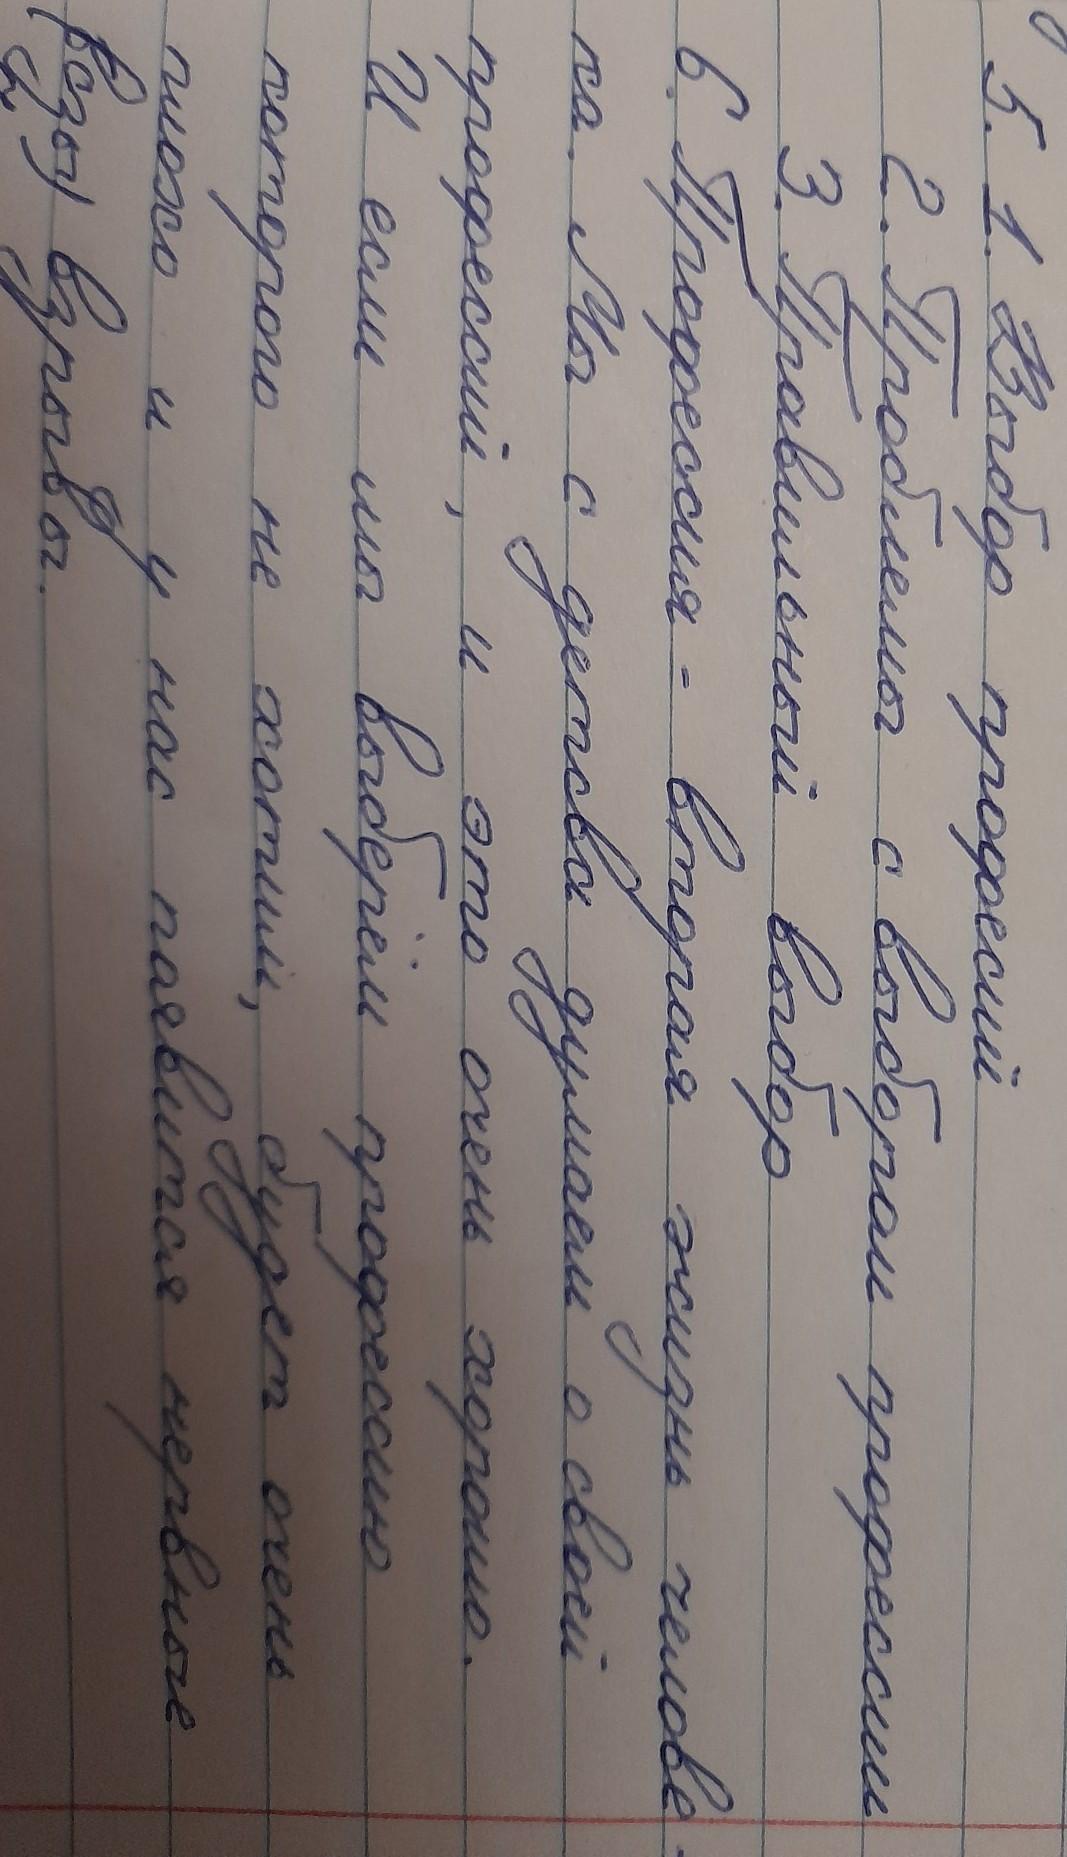 5. 1. Выбор професий
2. Проблемы с выбором профессии
3. Правильный выбор
6. Професия - вторая жизнь челове-
ка. Мы с детсва думаем о своей
професий, и это очень хорошо.
И если мы выберём профессию
которого не хотим, будет очень
плохо и у нас паявится нервные
взрывы.